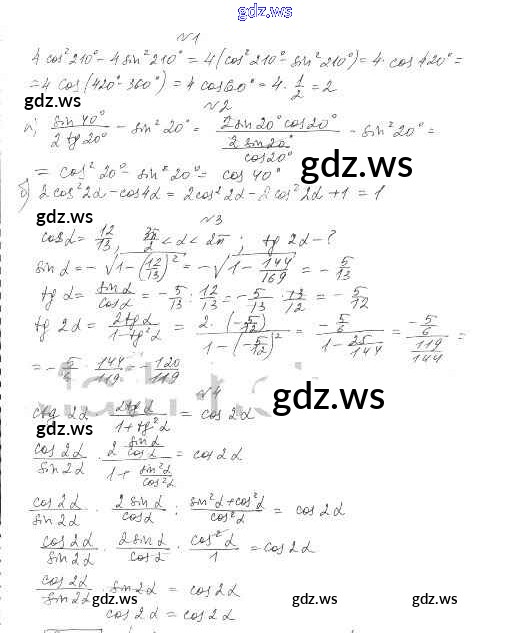 gdz.ws
№1
4cos²210° - 4sin²210° = 4(cos²210° - sin²210°) = 4·cos420° =
= 4cos(420° - 360°) = 4cos60° = 4·1/2 = 2
gdz.ws
№2
а) sin40°/2tg20° - sin²20° = 2sin20°cos20°/(2sin20°/cos20°) - sin²20° =
= cos²20° - sin²20° = cos40°
gdz.ws
б) 2cos²2α - cos4α = 2cos²2α - 2cos²2α + 1 = 1
gdz.ws
№3
cosα = 12/13, 3π/2 < α < 2π; tg2α - ?
sinα = -√(1 - (12/13)²) = -√(1 - 144/169) = -5/13
tgα = sinα/cosα = -5/13 : 12/13 = -5/13 · 13/12 = -5/12
tg2α = 2tgα/(1 - tg²α) = 2·(-5/12)/(1 - (-5/12)²) = (-5/6)/(1 - 25/144) = (-5/6)/(119/144) =
= -5/6 · 144/119 = -120/119
№4
gdz.ws
ctg2α · 2tgα/(1 + tg²α) = cos2α
gdz.ws
cos2α/sin2α · (2 sinα/cosα)/(1 + sin²α/cos²α) = cos2α
cos2α/sin2α · 2sinα/cosα : (sin²α + cos²α)/cos²α = cos2α
cos2α/sin2α · 2sinα/cosα · cos²α/1 = cos2α
cos2α/sin2α · sin2α = cos2α
gdz.ws gdz.ws gdz.ws
cos2α = cos2α